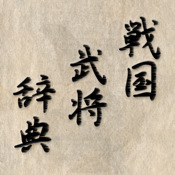 戦国
武将
辞典